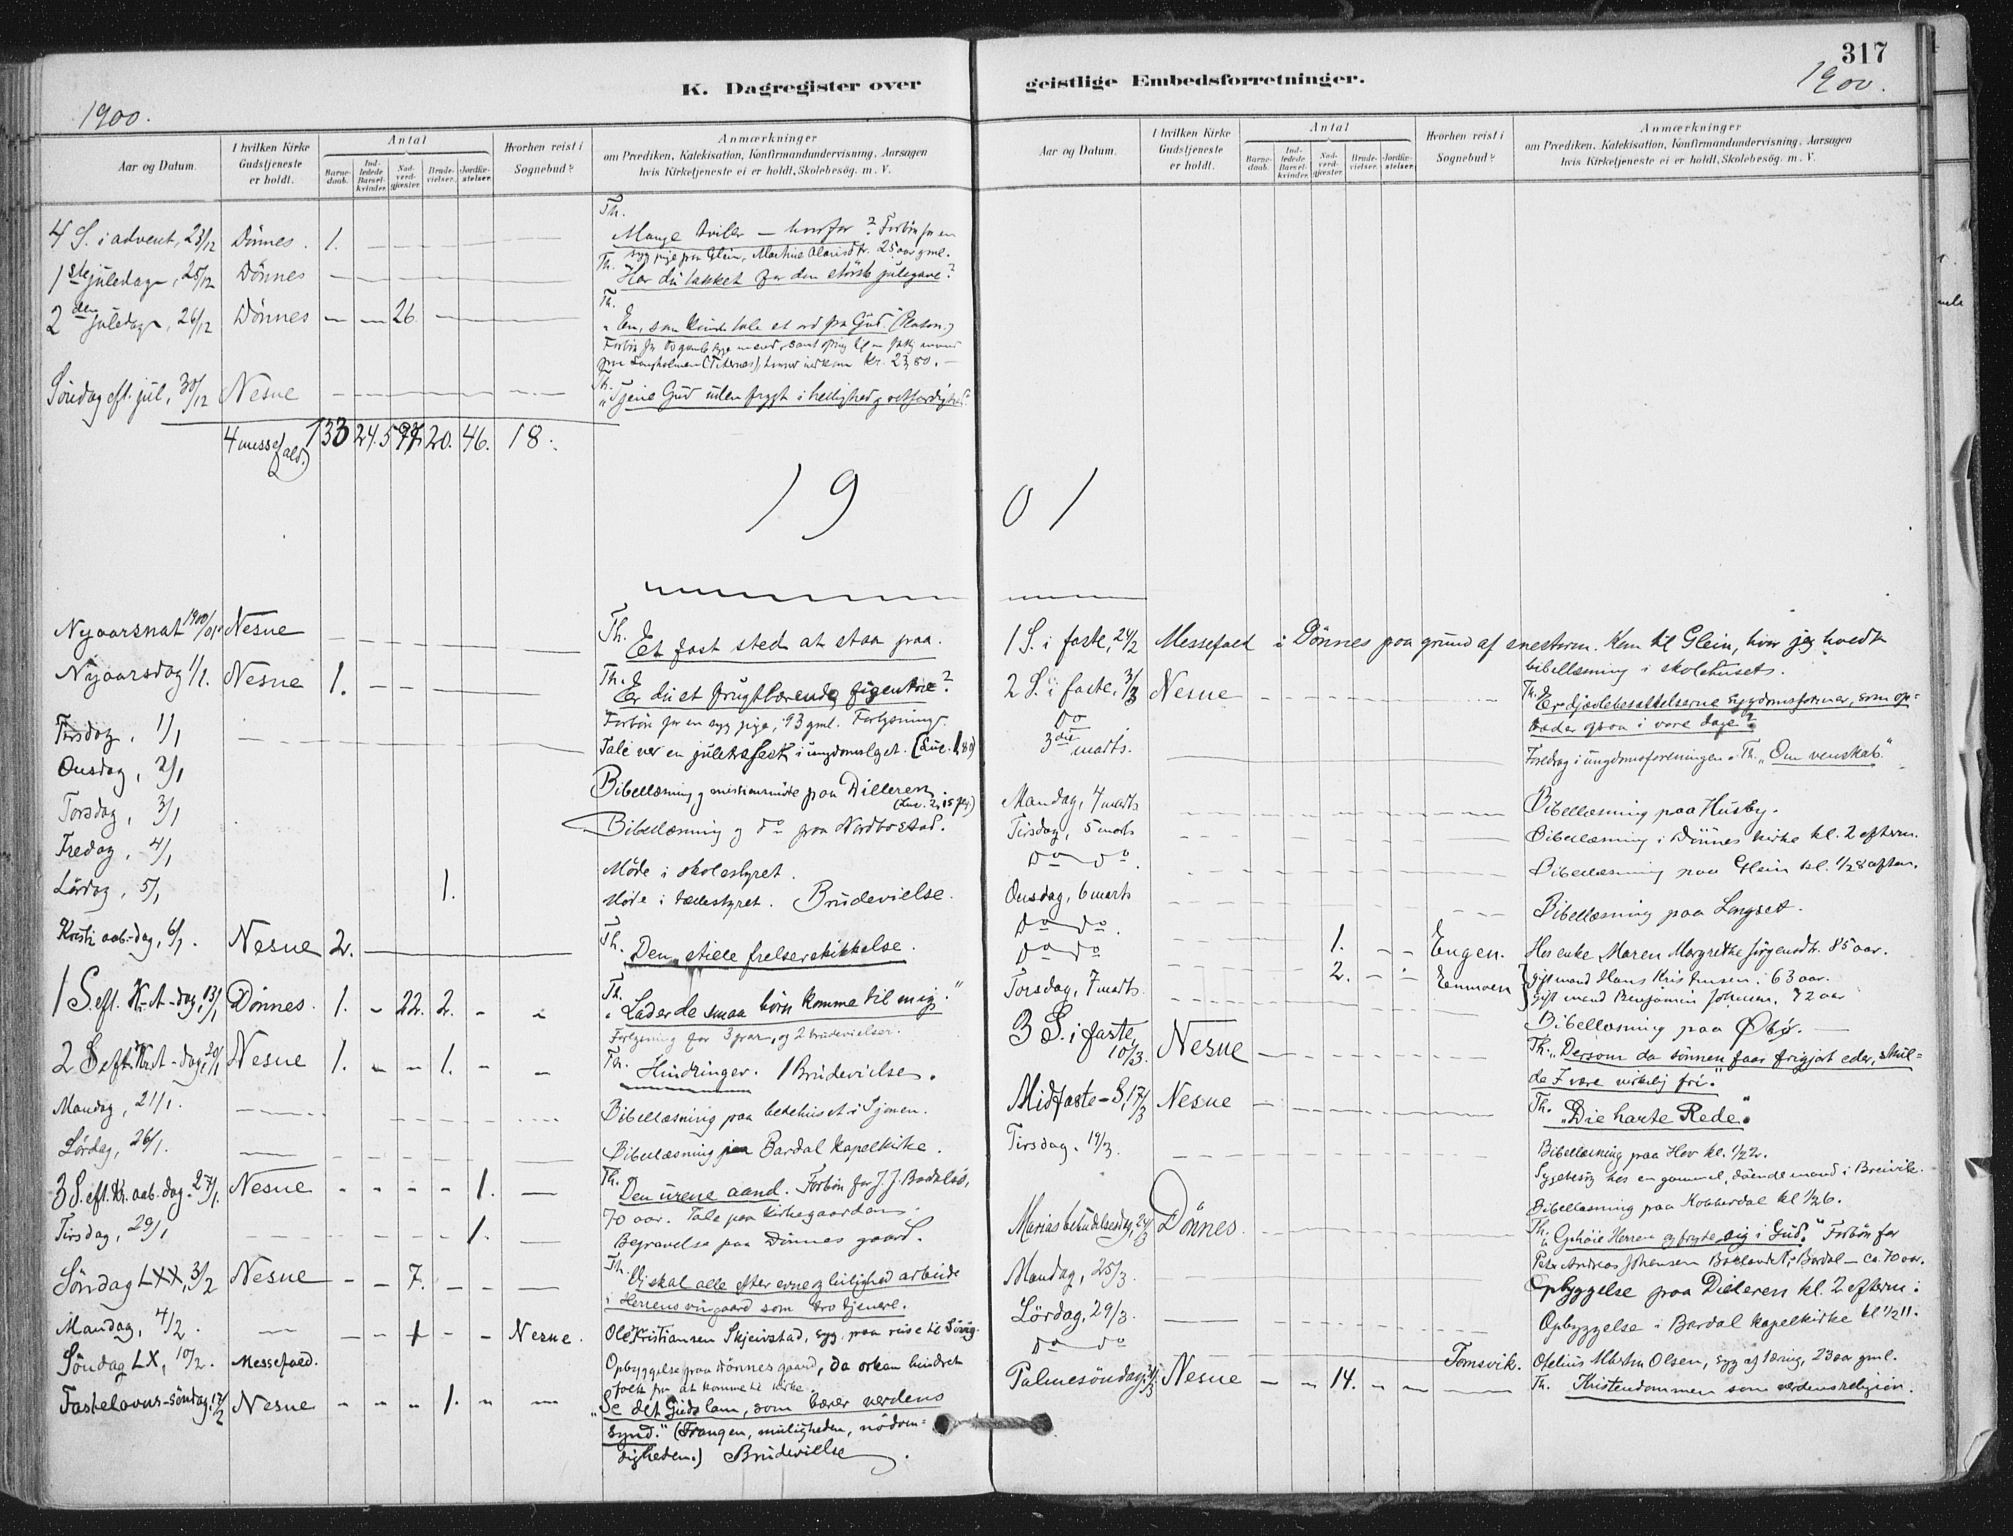 317
K. Dagregister over geistlige Embedsforretninger.
1900.
1900.
Aar og Datum.
I hvilken Kirke Gudstjeneste er holdt.
Antal
Barne-daab.
Ind-ledede Barsel-kvinder.
Nad-verd-gjæster.
Brude-vielser.
Jordfæ-stelser.
Hvorhen reist i Sognebud?
Anmærkninger
om Prædiken, Katekisation, Konfirmandundervisning, Aarsagen
hvis Kirketjeneste ei er holdt, Skolebesög. m. V.
4 S. i advent, 23/12 Dönnes. 1. Th. Mange tviler – hvorfor? Forbön for en
syg pige fra Glein, 25 aar gml.
1ste juledag, 25/12 Dönnes Th. Har du takket for den störste julegave?
2den juledag, 26/12 Dönnes 26. Th. "En, som kunde tale et ord fra Gud."
kr. 23,80.
Söndag eft. jul, 30/12 Nesne Th. "Tjene Gud uden frygt i hellighed og retfærdighed."
4 messefald.) 133 24. 20. 46. 18.
1901
Nyaarsnat 1900/01 Nesne Th. Et fast sted at staa paa.
Nyaarsdag 1/1. Nesne 1. Th. Er du et frugtbærende figentræ?
Forbön for en syg pige, 93 gml. Forlysning.
Tirsdag, 1/1 Tale ved en juletræfest i ungdomslaget.
Onsdag, 2/1 Bibellæsning og missionsmöde paa Dilleren.
Torsdag, 3/1 Bibellæsning og do paa Nordbostad.
Fredag, 4/1 Möde i skolestyret.
Lördag, 5/1 1. Möde i tællestyret. Brudevielse.
Kristi aab.-dag, 6/1. Nesne 2. Th. Den stille frelserskikkelse.
1 S. eft. K.-A-dag, 13/1 Dönnes. 1. 22. 2. Th. "Lader de smaa börn komme til mig."
Forlysning for 3 par, og 2 brudevielser.
2 S. eft. Kr. A-dag, 20/1 Nesne 1. 1. Th. Hindringer. 1 Brudevielse.
Mandag, 21/1. Bibellæsning paa bedehuset i Sjonen.
Lördag, 26/1. Bibellæsning paa Bardal kapelkirke.
3 S. eft. Kr. aab. dag, 27/1. Nesne 1. Th. Den urene aand. Forbön for J. J.
70 aar. Tale paa kirkegaarden.
Tirsdag, 29/1 1. Begravelse paa Dönnes gaard.
Söndag LXX, 3/2 Nesne 7. Th. Vi skal alle efter evne og leilighed arbeide
i Herrens vingaard som tro tjenere.
Mandag, 4/2. 1 Nesne. Ole Kristiansen Skjeivstad, syg paa reise til
Söndag LX, 10/2. Messefald. Opbyggelse paa Dönnes gaard, da orkan hindret
folk fra at komme til kirke.
Fastelavns-söndag, 17/2 Nesne 1. "Se det Guds lam, som bærer verdens
synd." (Trangen, muligheden, nödven-
digheden.) Brudevielse.
1 S. i faste, 24/2 Messefald i Dönnes paa grund af snestorm. Kom til Glein, hvor jeg holdt
bibellæsning i skolehuset.
2 S. i faste, 3/3 Nesne Th. Er djævlebesættelserne sygdomsformer, som op-
træder ogsaa i vore dage?
Do 3die marts. Foredrag i ungdomsforeningen. Th. "Om venskab."
Mandag, 4 marts Bibellæsning paa Husby.
Tirsdag, 5 marts Bibellæsning i Dönnes kirke kl. 2 efterm.
Do Do. Bibellæsning paa Glein kl. 1/2 8 aften.
Onsdag, 6 marts Bibellæsning paa Longset.
Do Do. 1. Engen. Hos enke Maren Margrethe Jörgensdtr. 85 aar.
Do Do 2. gift mand Hans Kristensen. 63 aar.
gift mand Benjamin Johnsen, 72 aar
Torsdag, 7 marts. Bibellæsning paa Öbö.
3 S. i faste, 10/3. Nesne Th. "Dersom da sönnen faar frigjort eder, skul-
de I være virkelig fri."
Midfaste-S, 17/3 Nesne Th. "Die harte Rede".
Tirsdag, 19/3. Bibellæsning paa Hov kl. 1/2 2.
Sygebesög hos en gammel, döende mand i Breivik.
Bibellæsning paa Kobberdal kl 1/2 6.
Marias bebudelsesdag, 24/3 Dönnes. Th. "Ophöie Herren og fryde sig i Gud." Forbön for
Peter Andreas Johansen Bardal – ca. 70 aar.
Mandag, 25/3. Opbyggelse paa Dilleren kl. 2 efterm.
Lördag, 29/3. Opbyggelse i Bardal kapelkirke kl 1/2 11.
Do Do Tomsvik. Ofelius Martin Olsen, syg af tæring, 23 aar gml.
Palmesöndag, 31/3 Nesne 14. Th. Kristendommen som verdensreligion.